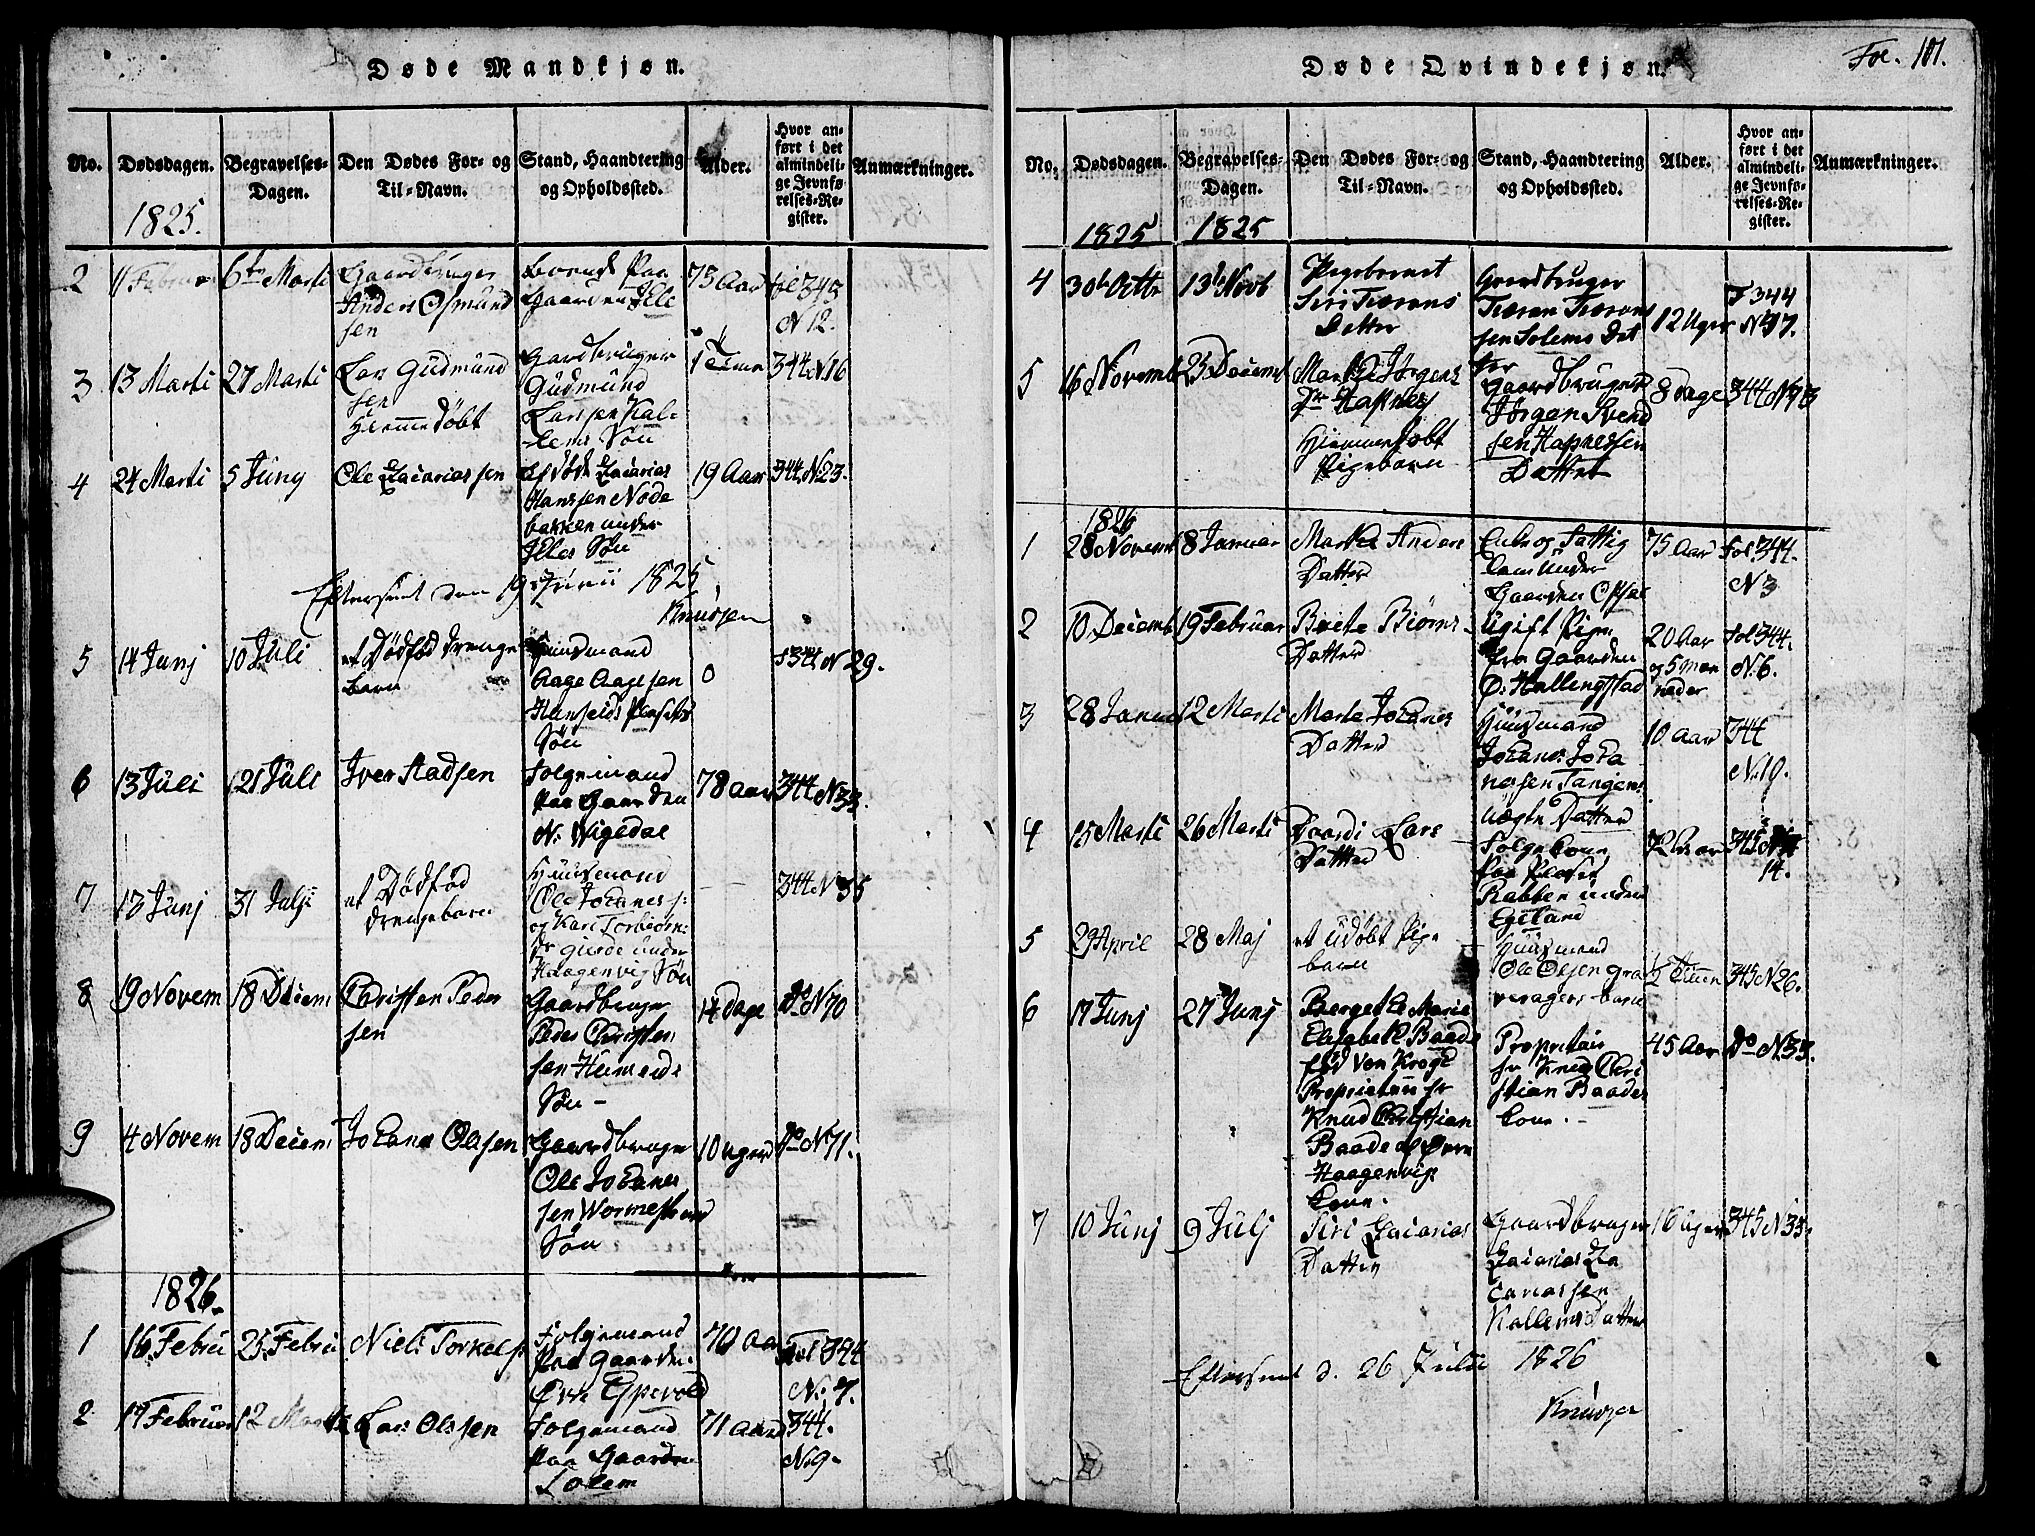 Døde Mandkjøn.
No.
Dødsdagen.
Begravelses-
Dagen.
Den Dødes For- og
Til-Navn.
Stand, Haandtering
og Opholdssted.
Alder.
Hvor an-
ført i det
almindeli-
ge Jevnfø-
relses-Re-
gister.
Anmærkninger.
1825.
2
11 Februar
6te Marti
Gaardbruger
Anders Osmund
sen
boende paa
Gaarden Ille
75 Aar
fol 343
N 12.
3
13 Marti
27 Marti
Lars Gudmund
sen
Hiemmedøbt
Gardbruger
Gudmund
Larssen Kal-
lems Søn
1 Time
344 N 16
4
24 Marti
5 Juny
Ole Zacariassen
afdøde Zacarias
Hanssen Node
bakken under
Illes Søn
19 Aar
344 N 23.
Efterseet den 19 Junii 1825
Knudsen
5
14 Junj
10 Juli
et Dødfød drenge
barn
Huusmand
Aage Aagesen
Søn
0
f 344 N 29.
6
13 Juli
121 Juli
Iver Aadsen
Folgemand
paa Gaarden
N. Vigedal
78 Aar
344 N 33.
7
13 Junj
31 Julji
et Dødfød
drengebarn
Huusmand
Ole Johannes s:
og Kari Torbiørns
Dr Gierde under
Haagenvig Søn
344 N 35
8
19 Novem
18 Decem
Christen Peder
sen
Gaardbruger
Peder Christen
sen Hiemends
Søn -
14 Dage
do N 70
9
4 Novem
18 Decem
Johanes Olssen
Gaardbruger
Ole Johannes
sen Wormestrand
Søn
10 uger
do N 71.
1826.
1
16 Febru
25 Febru
Niels Torkels
Folgemand
paa Gaarden
Øvre Espevold
70 Aar
fol 344
No. 7.
2
17 Februar
12 Marti
Lars Olssen
Folgemand
paa Gaarden
Solem
71 Aar
344.
No 9.
Døde Qvindekjøn.
Fol. 101.
No.
Dødsdagen.
Begravelses-
Dagen.
Den Dødes For- og
Til-Navn.
Stand, Haandtering
og Opholdssted.
Alder.
Hvor an-
ført i det
almindeli-
ge Jevnfø-
relses-Re-
gister.
Anmærkninger.
1825
1825
4
30te Octbr
13de Novb
Pigebarnet
Siri Tiærans
Datter
Gaardbruger
Tiæran Tiærans
sen Solems Dat
ter
12 Uger
F 344
N 47.
5
16 Novemb
25 Decemb
Marthe Jørgens
Dr Hapnes
Hjemmedøbt
Pigebarn
Gaardbruger
Jørgen Svend
sen Hapnessen
Datter
8 dage
344 N 73
1826
1
28 Novemb
8 Januar
Marthe Anders
Datter
Enke og Fattig
Lem under
Gaarden Opsal
75 Aar
Fol 344.
N 3
2
10 Decemb
19 Februar
Berte Biørns
Datter
Ugift Pige
fra Gaarden
Ø. Hallingstad
20 Aar
og 5 maa
neder
Fol 344.
N. 6.
3
28 Januar
12 Marti
Marte Johanes
Datter
Huusmand
Johanes Joha
nessen Tangens
ægte Datter
10 Aar
344
No 19.
4
15 Marti
26 Marti
Gaardi Lars
Datter
Folgekone
paa Pladset
Rabben under
Egeland
72 Aar
345 No
14.
5
29 April
28 Maj
et udøbt Pige
barn
Huusmand
Ole Olsen Gra
veragers barn
1/2 Time
345 N 26.
6
17 Junj
27 Junj
Bergethe Marie
Elisabeth Baade
fød von Krogh
Proprietair hr
Knud Christian
Baade af Øvre
Haagenvigs
Kone.
Proprietair
hr Knud Chri
stian Baades
kone. -
45 Aar
do N 33.
7
10 Junj
9 Julj
Siri Zacarias
Datter
Gaardbruger
Zacarias Za
cariassen
Kallems Datter
16 uger
345 N 35.
Efterseet d. 26 Julii 1826
Knudsen